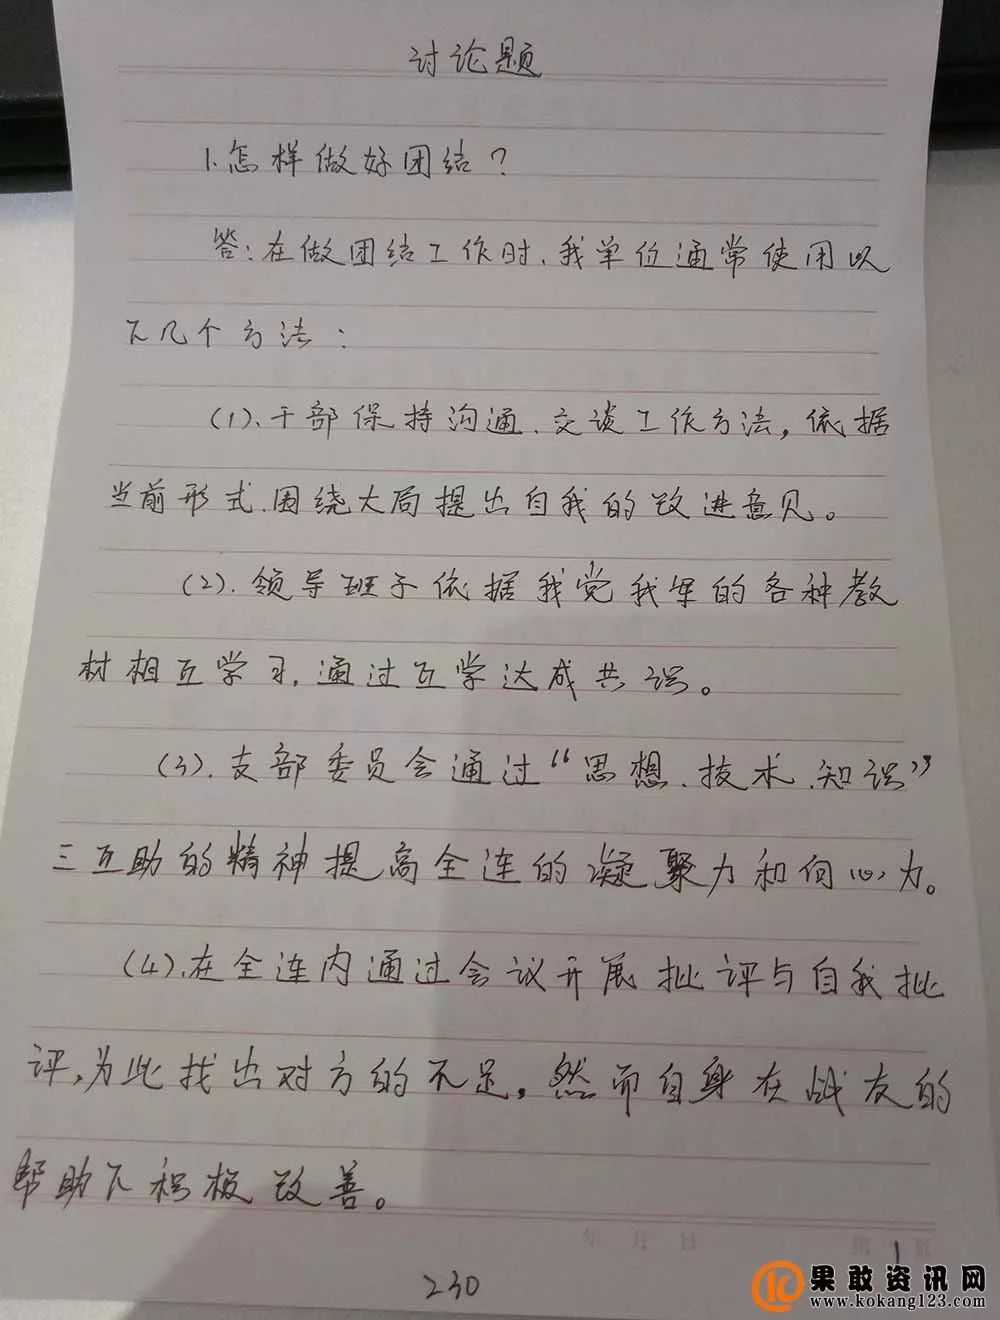 讨论题
1.怎样做好团结？
答：在做团结工作时、我单位通常使用以
下几个方法：
(1).干部保持沟通、交谈工作方法，依据
当前形式、围绕大局提出自我的改进意见。
(2).领导班子依据我党我军的各种教
材相互学习，通过互学达成共识。
(3).支部委员会通过“思想、技术、知识”
三互助的精神提高全连的凝聚力和向心力。
(4).在全连内通过会议开展批评与自我批
评，为此找出对方的不足，然而自身在战友的
帮助下积极改善。
年 月 日 第 1 页
230
果敢资讯网
www.kokang123.com